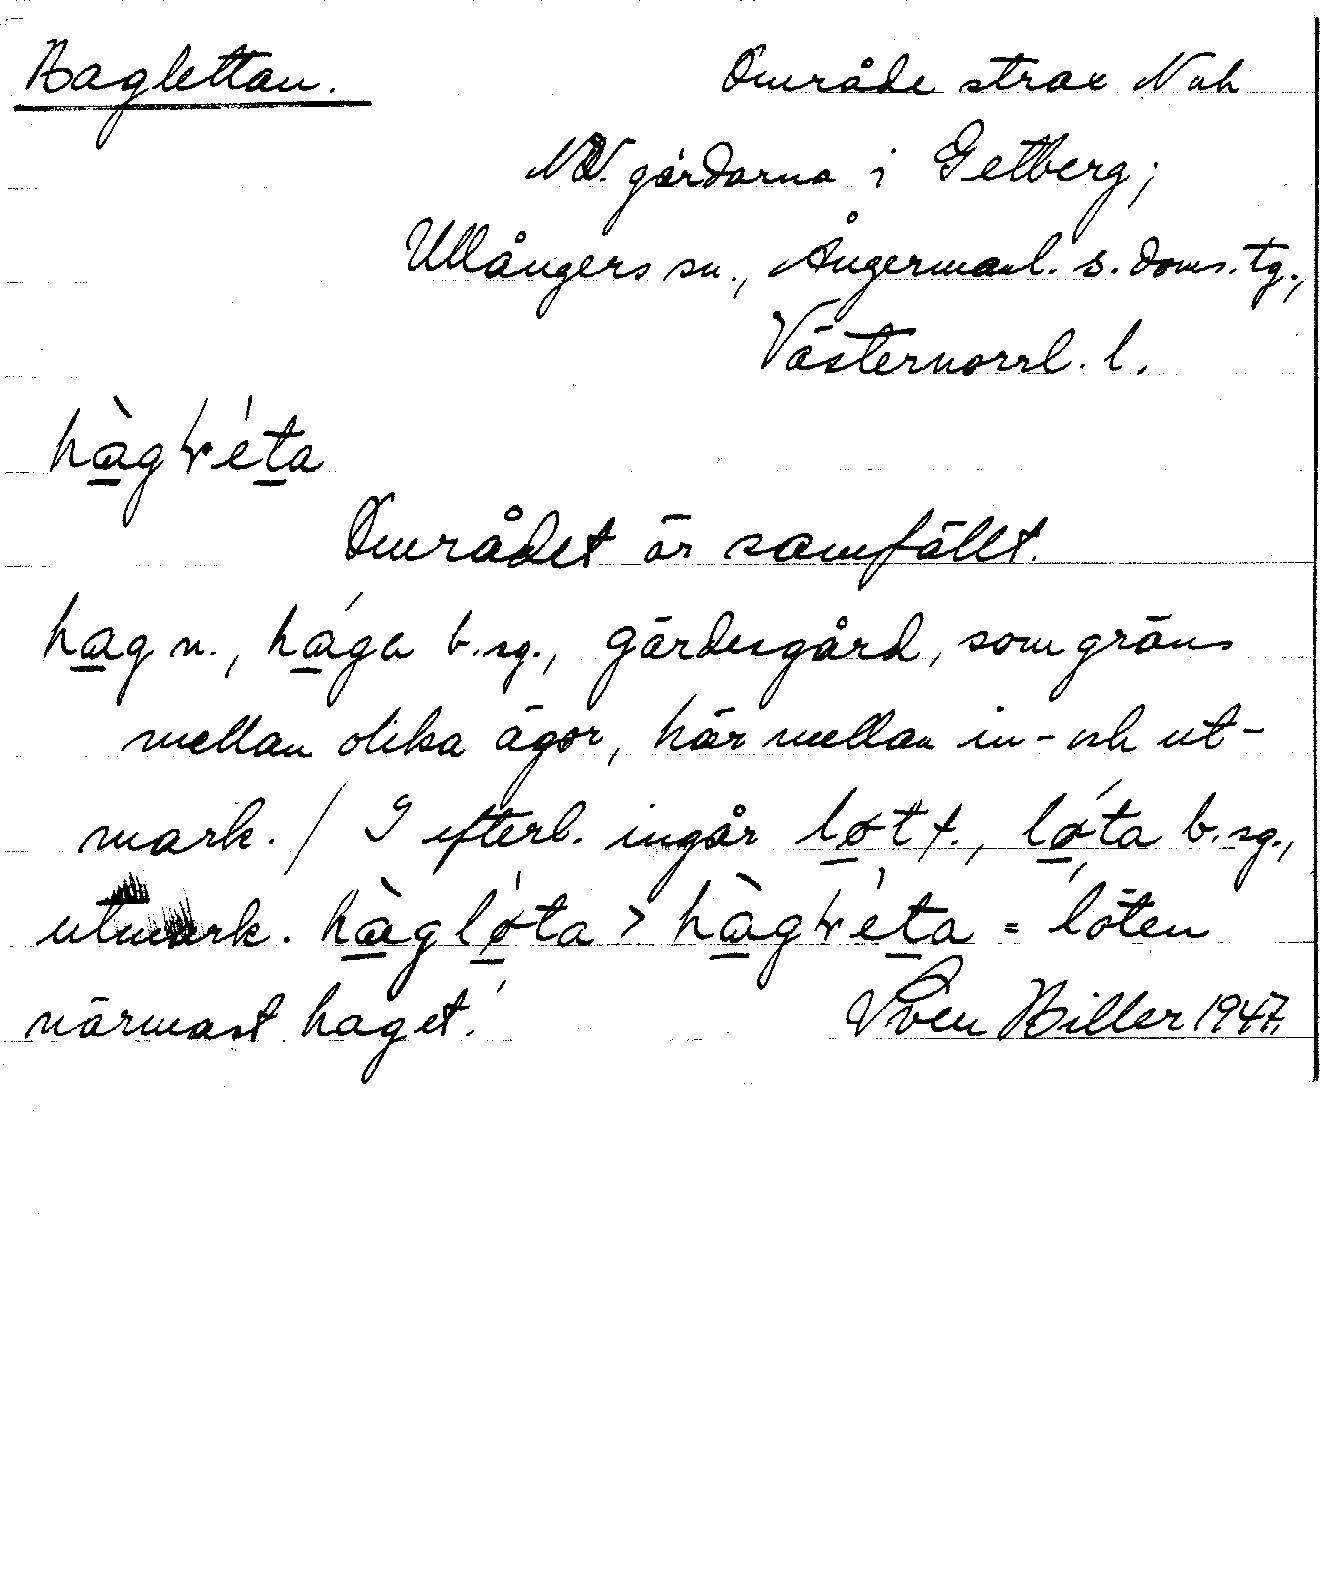 Haglettan. Område strax N och
NV. gårdarna i Getberg;
Ullångers sn., Ångermanl. s. doms. tg.,
Västernorrl. l.
hàgɫéta
Området är samfällt.
hag n., hága b.sg., gärdesgård, som gräns
mellan olika ägor, här mellan in- och ut-
mark. / I efterl. ingår løt f., lǿta b.sg.,
utmark. hàglǿta > hàgɫéta = 'löten
närmast haget.' Sven Hiller 1947.